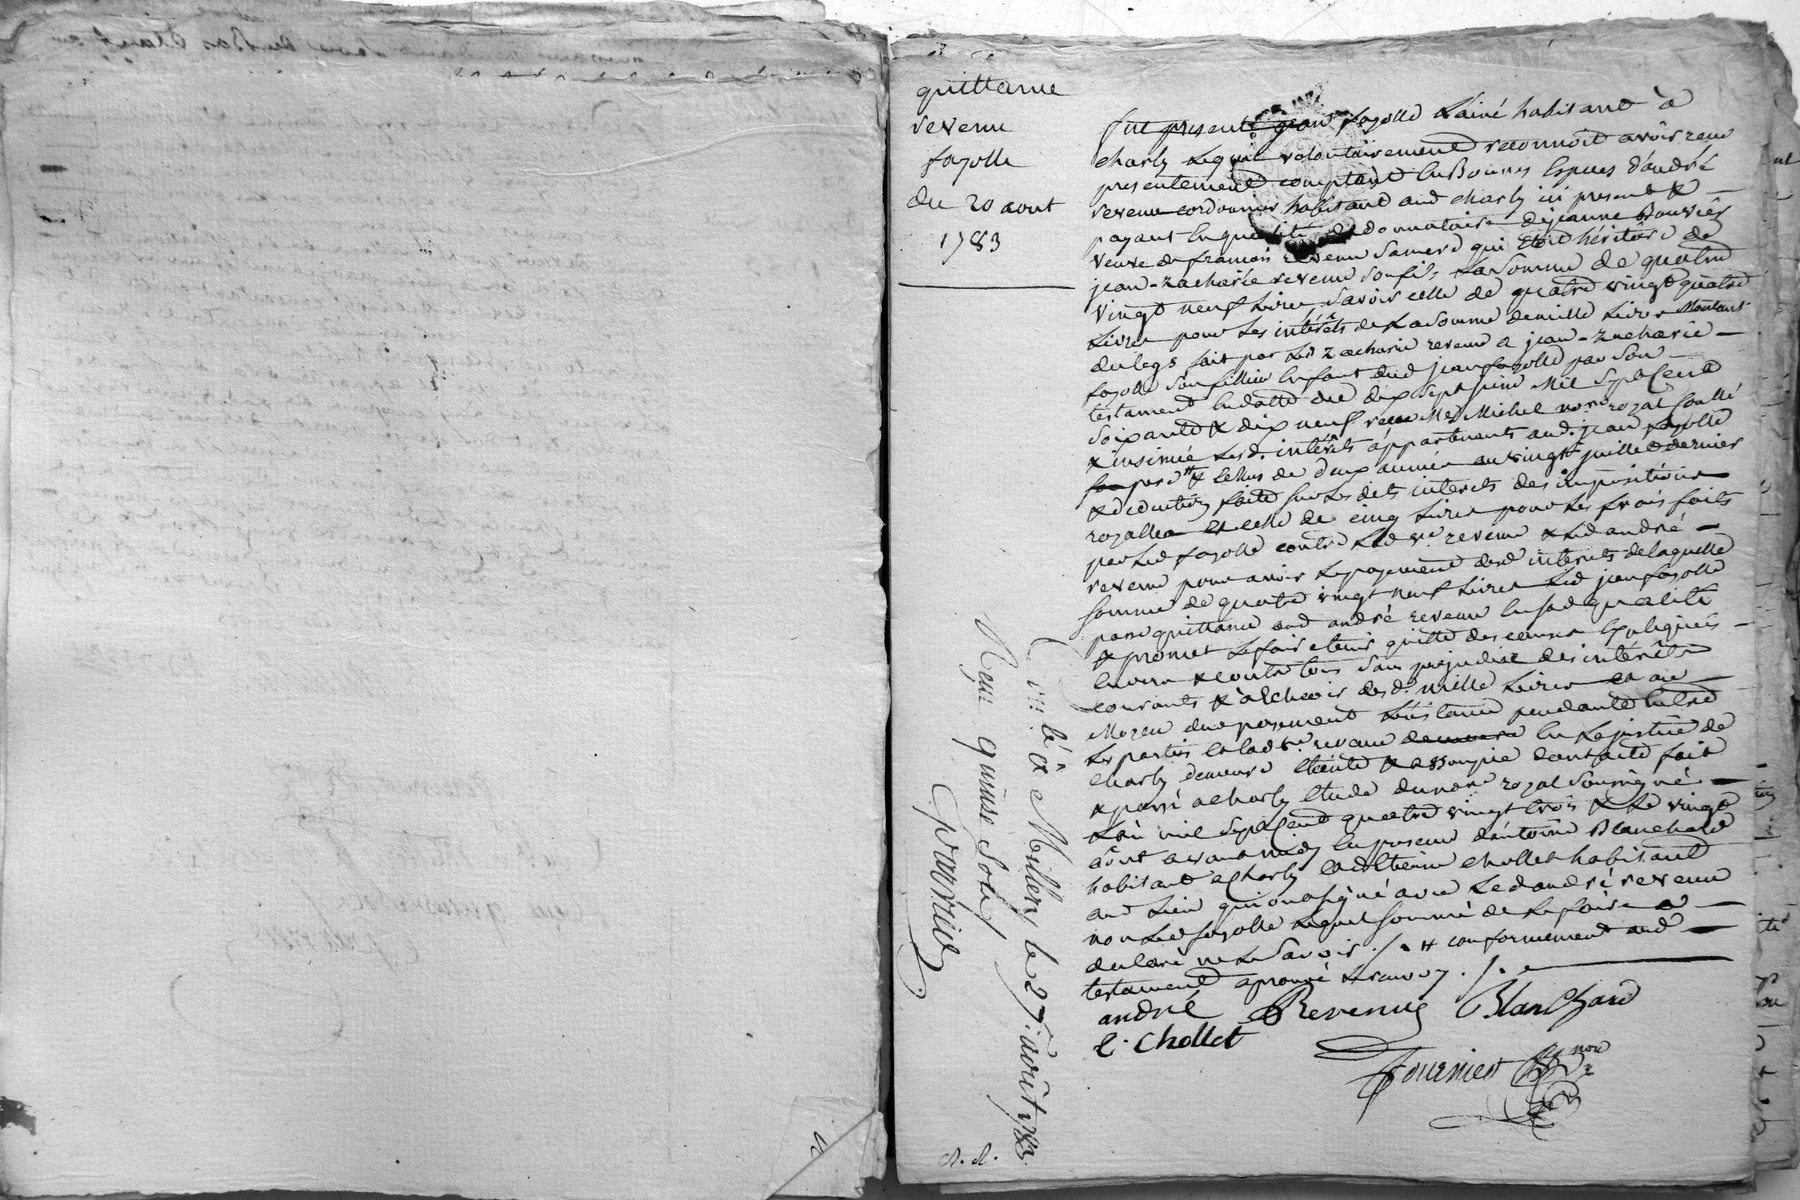 quittance
revenu
fayolle
du 20 aout
1783
fut present jean fayolle L'ainé habitant à
charly Lequel volontairement reconnoit avoir reçu
presentement comptant En Bonnes Especes d'andré
revenu cordonnier habitant aud charly ici present &
payant En qualité de donnataire de jeanne Bouvier
veuve de françois revenu Sa mere qui Etoit héritiere de
jean-zacharie revenu Son fils La Somme de quatre
vingt neuf Livres, Savoir celle de quatre vingt quatre
Livres pour Les intérêts de La Somme de mille Livres Montant
du legs fait par Led zacharie revenu a jean-zacharie
fayolle Son fillieu Enfant dud jean fayolle par Son
testament En datte du dix Sept juin Mil Sept Cent
Soixante & dix neuf reçu Me Michel nore royal Contlé
& insinué Les d. intérêts appartenants aud. jean fayolle
pere # & Echus de deux années au vingt juillet dernier
& deduction faite Sur Les dets interets des impositions
royalles et celle de cinq Livres pour Les frais faits
par Led fayolle contre Lad ve revenu & Led andré
revenu pour avoir Le payement desd interets de laquelle
Somme de quatre vingt neuf Livres Led jean fayolle
passe quittance aud andré revenu En Sad qualité
& promet Le faire tenir quitte des causes Expliquées
Envers & contre tous Sans prejudice des intérêts
courants & à Echeoir desd. mille Livres et au
Moyen du payement L'instance pendante Entre
Les parties et lad ve revenu En La justice de
charly demeure Eteinte & assoupie dont acte fait
& passé a charly Etude du nore royal Soussigné
L'an mil Sept Cent quatre vingt trois & Le vingt
aout avant midy En presence d'antoine Blanchard
habitant a charly et d'Etienne chollet habitant
aud Lieu qui ont Signé avec Led andré revenu
non Led fayolle Lequel Sommé de Le faire a
declaré ne Le Savoir ./. # conformement aud
testament aprouvé Le renvoy ./.
andré Revenu Blanchard
E. Chollet
fournier nore
Con.lé à Millery le 27. aoüt 1783.
Reçu quinse Sols
fournier